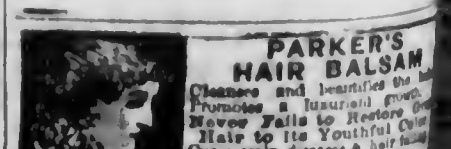 PARKER'S
HAIR BALSAM
Cleanses and beautifies the
Promotes a luxuriant growth.
Never Fails to Restore Gray
Hair to its Youthful Color.
hair falling